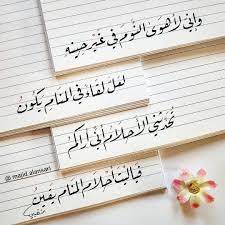 وإني لأهوى النوم في غير حينه
لعل لقاء في المنام يكون
تحدثني الأحلام أني أراكم
فيا ليت أحلام المنام يقين